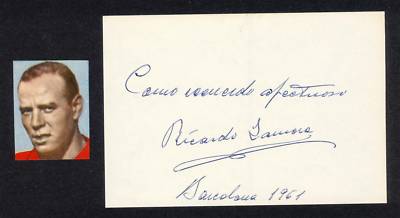 Como recuerdo afectuoso
Ricardo Zamora
Barcelona 1961